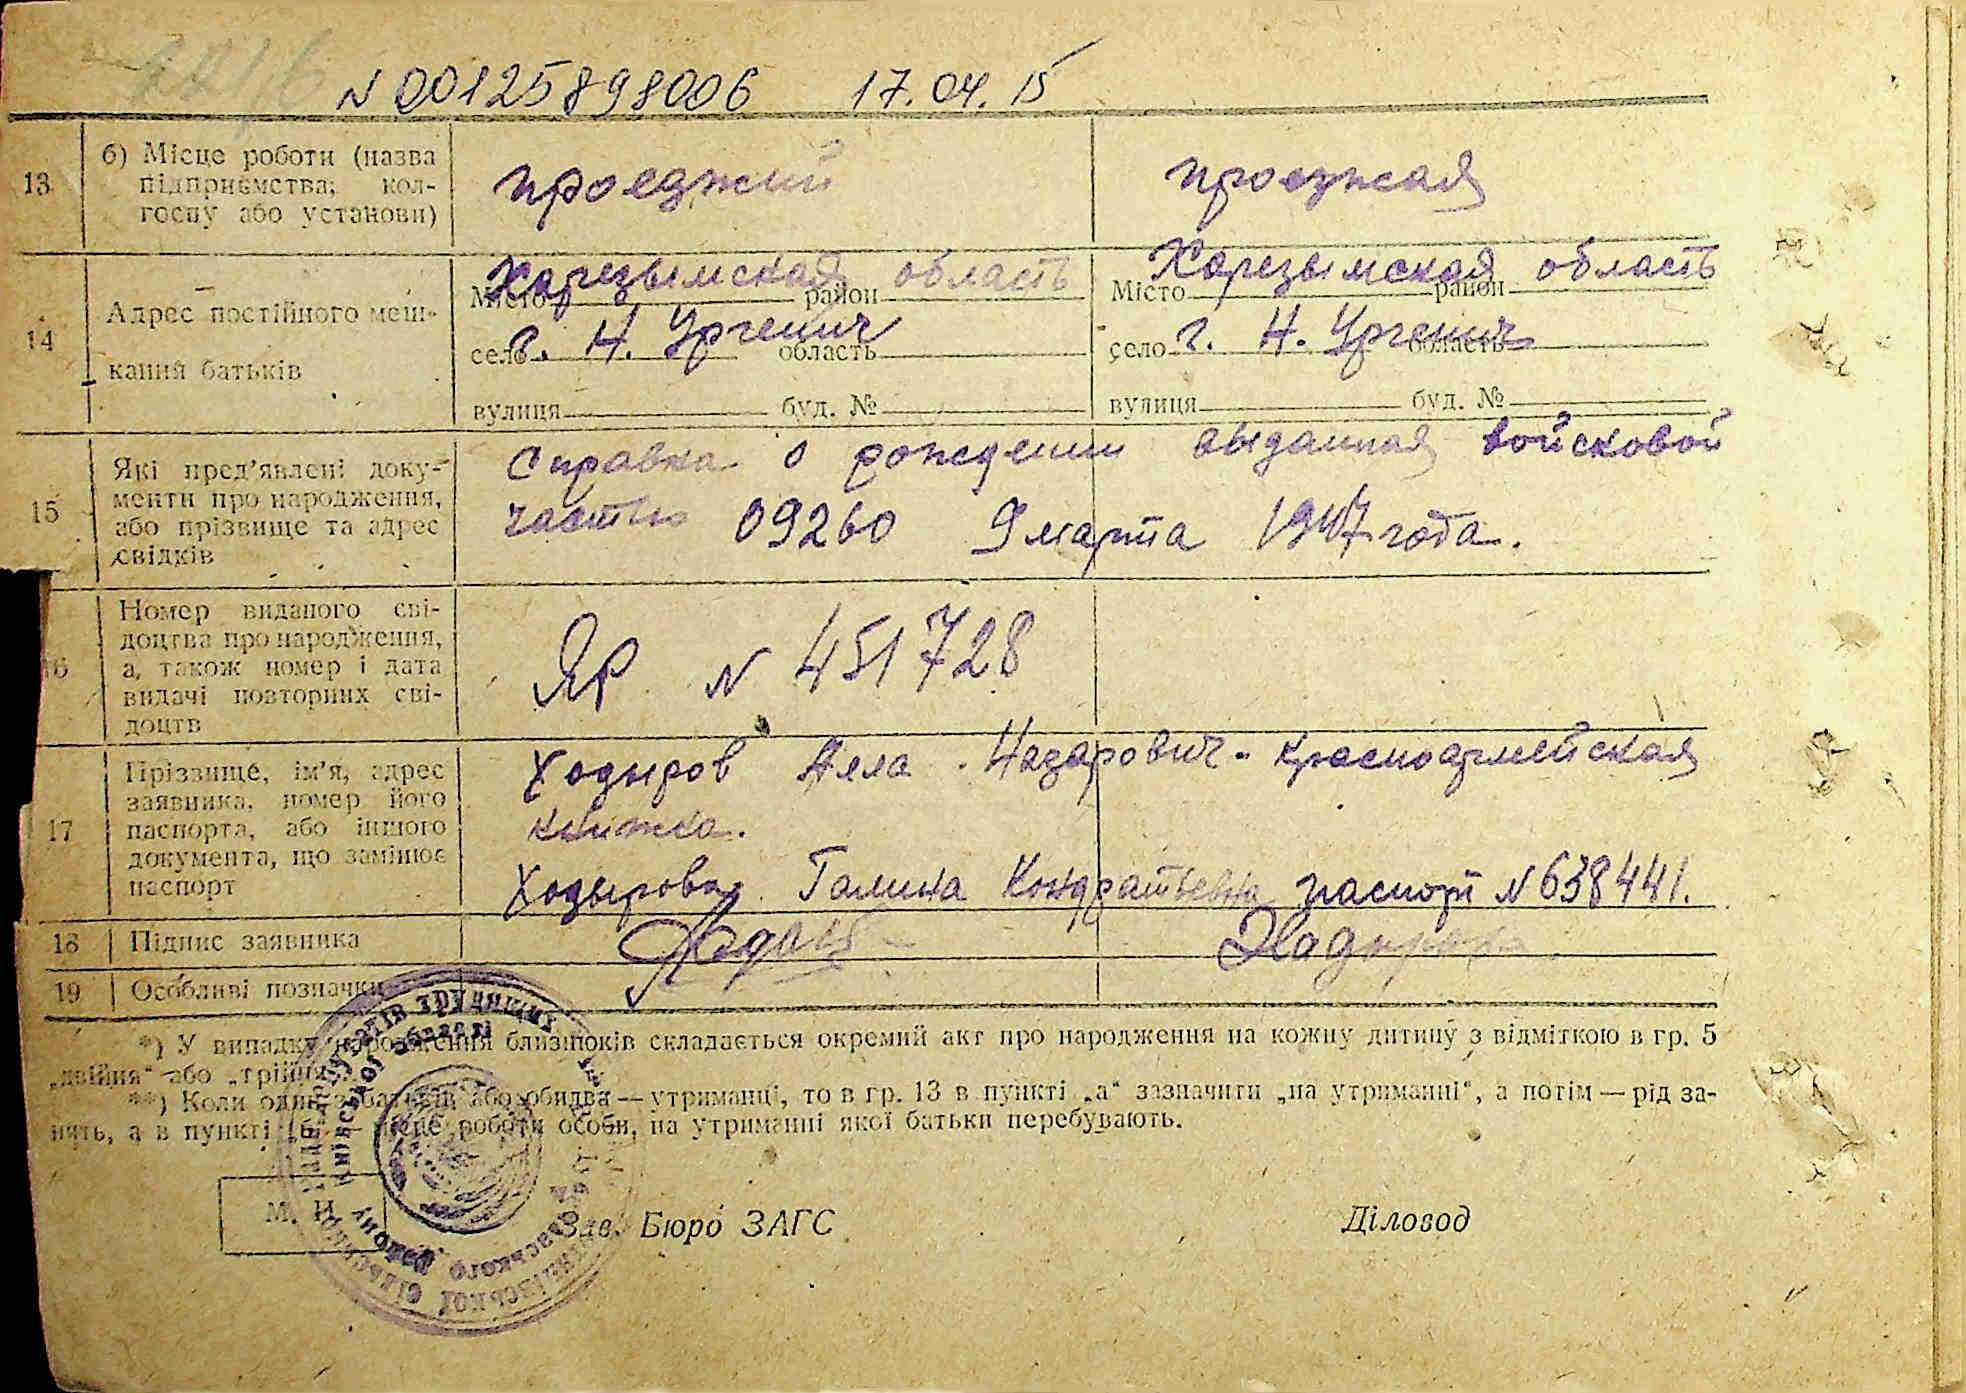 N 00125898006 17.04.15
13 б) Місце роботи (назва підприємства, колгоспу або установи)
проеджий
проезжая
14 Адрес постійного мешкання батьків
Харезымская область
Місто район
г. Н. Ургенич
село область
вулиця буд. №
Харезымская область
Місто район
г. Н. Ургенич
село область
вулиця буд. №
15 Які пред'явлені документи про народження, або прізвище та адрес свідків
Справка о рождении выданная войсковой
частью 09260 9 марта 1947 года.
16 Номер виданого свідоцтва про народження, а також номер і дата видачі повторних свідоцтв
ЯР N 451728
17 Прізвище, ім'я, адрес заявника, номер його паспорта, або іншого документа, що замінює паспорт
Ходыров Алла Назарович - красноармейская
книжка.
Ходырова Галина Кондратьевна паспорт N 638441.
18 Підпис заявника
19 Особливі позначки
*) У випадку народження близнюків складається окремий акт про народження на кожну дитину з відміткою в гр. 5
„двійня“ або „трійня“.
**) Коли один з батьків або обидва — утриманці, то в гр. 13 в пункті „а“ зазначити „на утриманні“, а потім — рід за-
нять, а в пункті „б“ — місце роботи особи, на утриманні якої батьки перебувають.
М. П.
Зав. Бюро ЗАГС Діловод